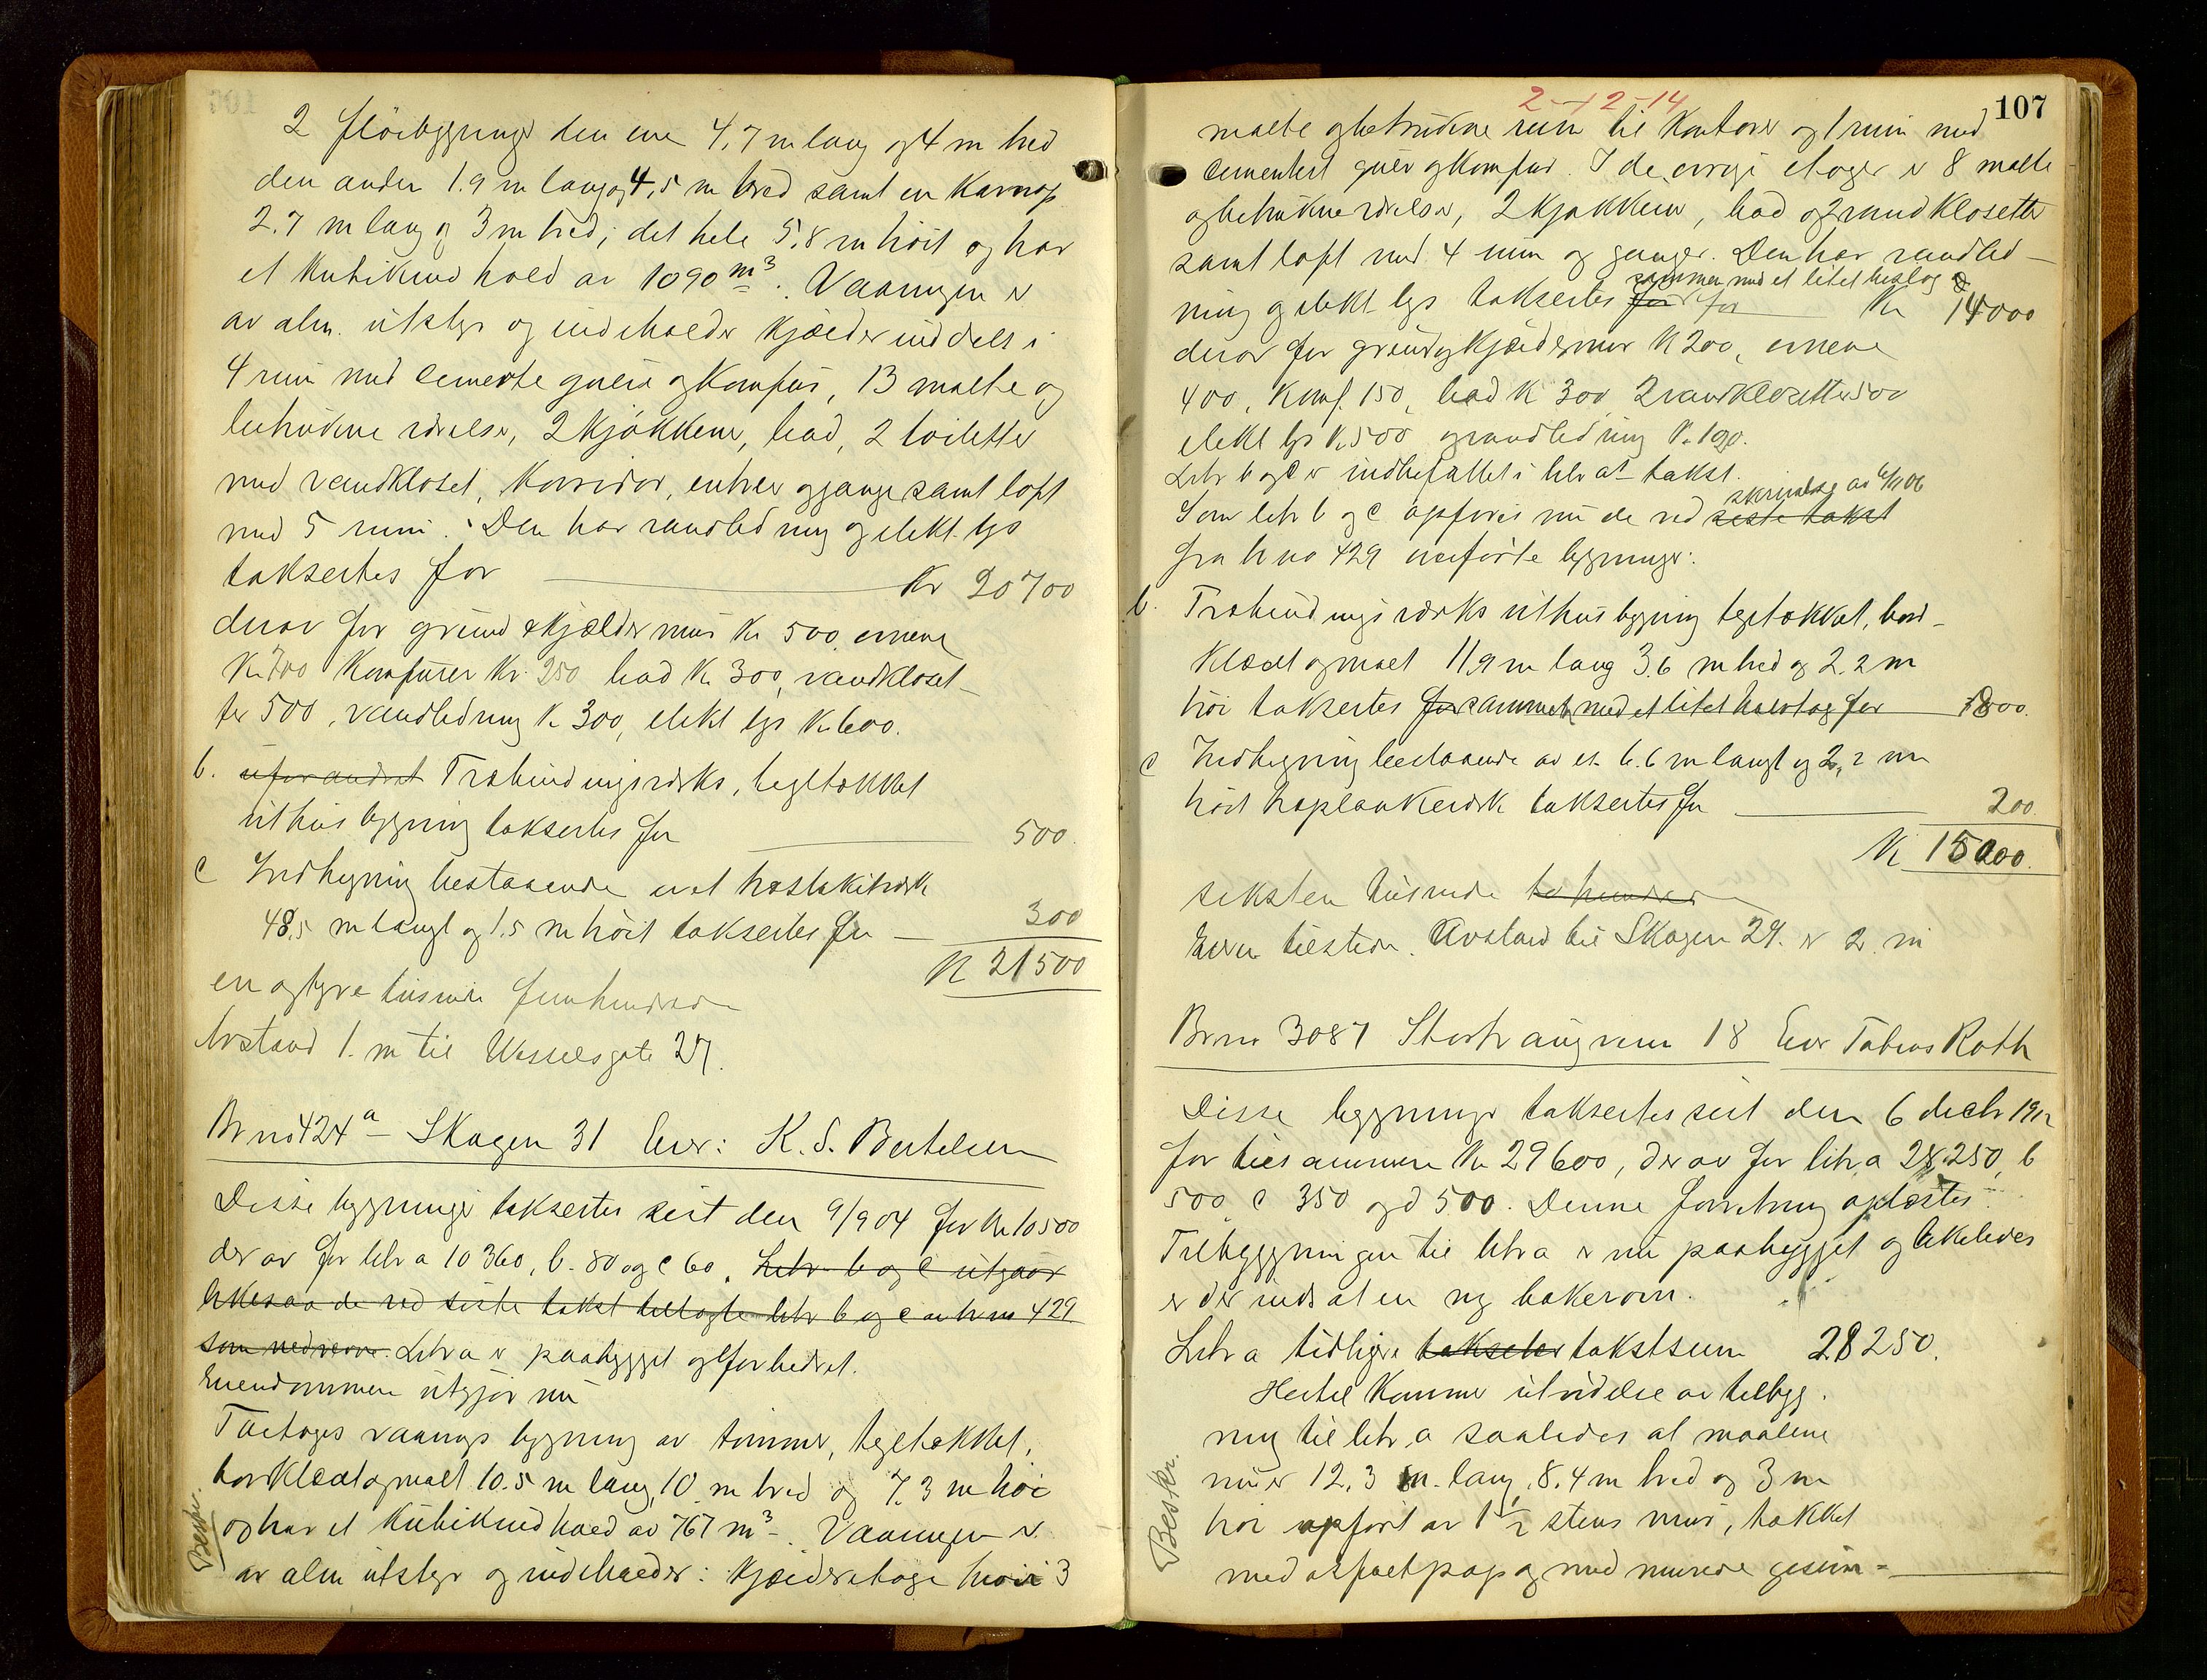 2 flöibygninger den ene 4,7 m lang og 4 m bred
den anden 1.9 m lang og 4,5 m bred samt en karnap
2.7 m lang og 3 m bred; det hele 5.8 m höit og har
et kubikindhold av 1090 m³. Vaaningen er
av alm. utstyr og indeholder kjælder inddelt i
4 rum med cementerte gulv og komfur, 13 malte og
betrukne værelser, 2 kjøkkener, bad, 2 toiletter
med vandkloset, korridor, entreer og gange samt loft
med 5 rum. Den har vandledning og elekt. lys
taksertes for Kr 20700
derav for grund & kjældermur Kr 500, ovnene
Kr 700 Komfurer Kr. 250 bad Kr 300, vandkloset-
ter 500, vandledning Kr 300, elekt lys Kr 600.
b. uforandret Træbindingsverks, tegltækket
uthusbygning taksertes for 500.
c Indhegning bestaaende av et træstakitverk
48,5 m langt og 1.5 m höit taksertes for 300
Kr 21500
en og tyve tusinde femhundrede
Avstand 1. m til Wesselsgate 27.
Br no 424 a Skagen 31 Eier: K. S. Bertelsen
Disse bygninger taksertes sist den 9/9 04 for Kr 10500
derav for litr a 10360, b. 80 og c 60. Litr b og c utgaar
likesaa de ved siste takst tillagte litr b og c av br no 429
som nedrevne. Litr a er paabygget og forbedret.
Eiendommen utgjør nu
Toetages vaanings bygning av tømmer, tegltækket,
bordklædt og malt 10.5 m lang, 10 m bred og 7.3 m höi
og har et kubikindhold av 767 m³. Vaaningen er
Beskr.
av alm utstyr og indeholder: Kjælderetage hvori 3
2-12-14
107
malte og betrukne rum til kontorer og 1 rum med
cementert gulv og komfur. I de øvrige etager er 8 malte
og betrukne værelser, 2 kjøkkener, bad og 2 vandklosetter
samt loft med 4 rum og ganger. Den har vandled-
sammen med et litet beslag
ning og elekt lys taksertes for for Kr 14000
derav for grund og kjældermur Kr 200, ovnene
400, Komf. 150, bad Kr 300 2 vandklosetter 500
elekt lys Kr 500 og vandledning Kr 100.
Litr b og c er indbefattet i litr a's takst.
skrivelse av 6/11 06
Som litr b og c opføres nu de ved siste takst
fra br no 429 overførte bygninger:
b. Træbindingsverks uthusbygning tegltækket, bord-
klædt og malt 11,9 m lang 3.6 m bred og 2.2 m
höi taksertes for sammen med et litet halvtag for 1800.
c Indhegning bestaaende av et 6.6 m langt og 2,2 m
höit træplankeverk taksertes for 200.
Kr 15000.
seksten tusinde to hundrede
Eieren tilstede. Avstand til Skagen 29. er 2. m
Br no 3087 Storhaugveien 18 Eier Tobias Roth
Disse bygninger taksertes sist den 6 decbr 1912
for tilsammen Kr 29600, derav for litr a 28250, b
500 c 350 og d 500. Denne forretning oplæstes.
Tilbyggningen til litr a er nu paabygget og likeledes
er der indsat en ny bakerovn.
Litr a tidligere takseter takstsum 28250.
Hertil kommer utvidelse av tilbygg-
ning til litr a saaledes at maalene
nu er 12.3 m. lang, 8.4 m bred og 3 m
höi opført av 1 ½ stens mur, tækket
Beskr.
med asfaltpap og med murede gesim-